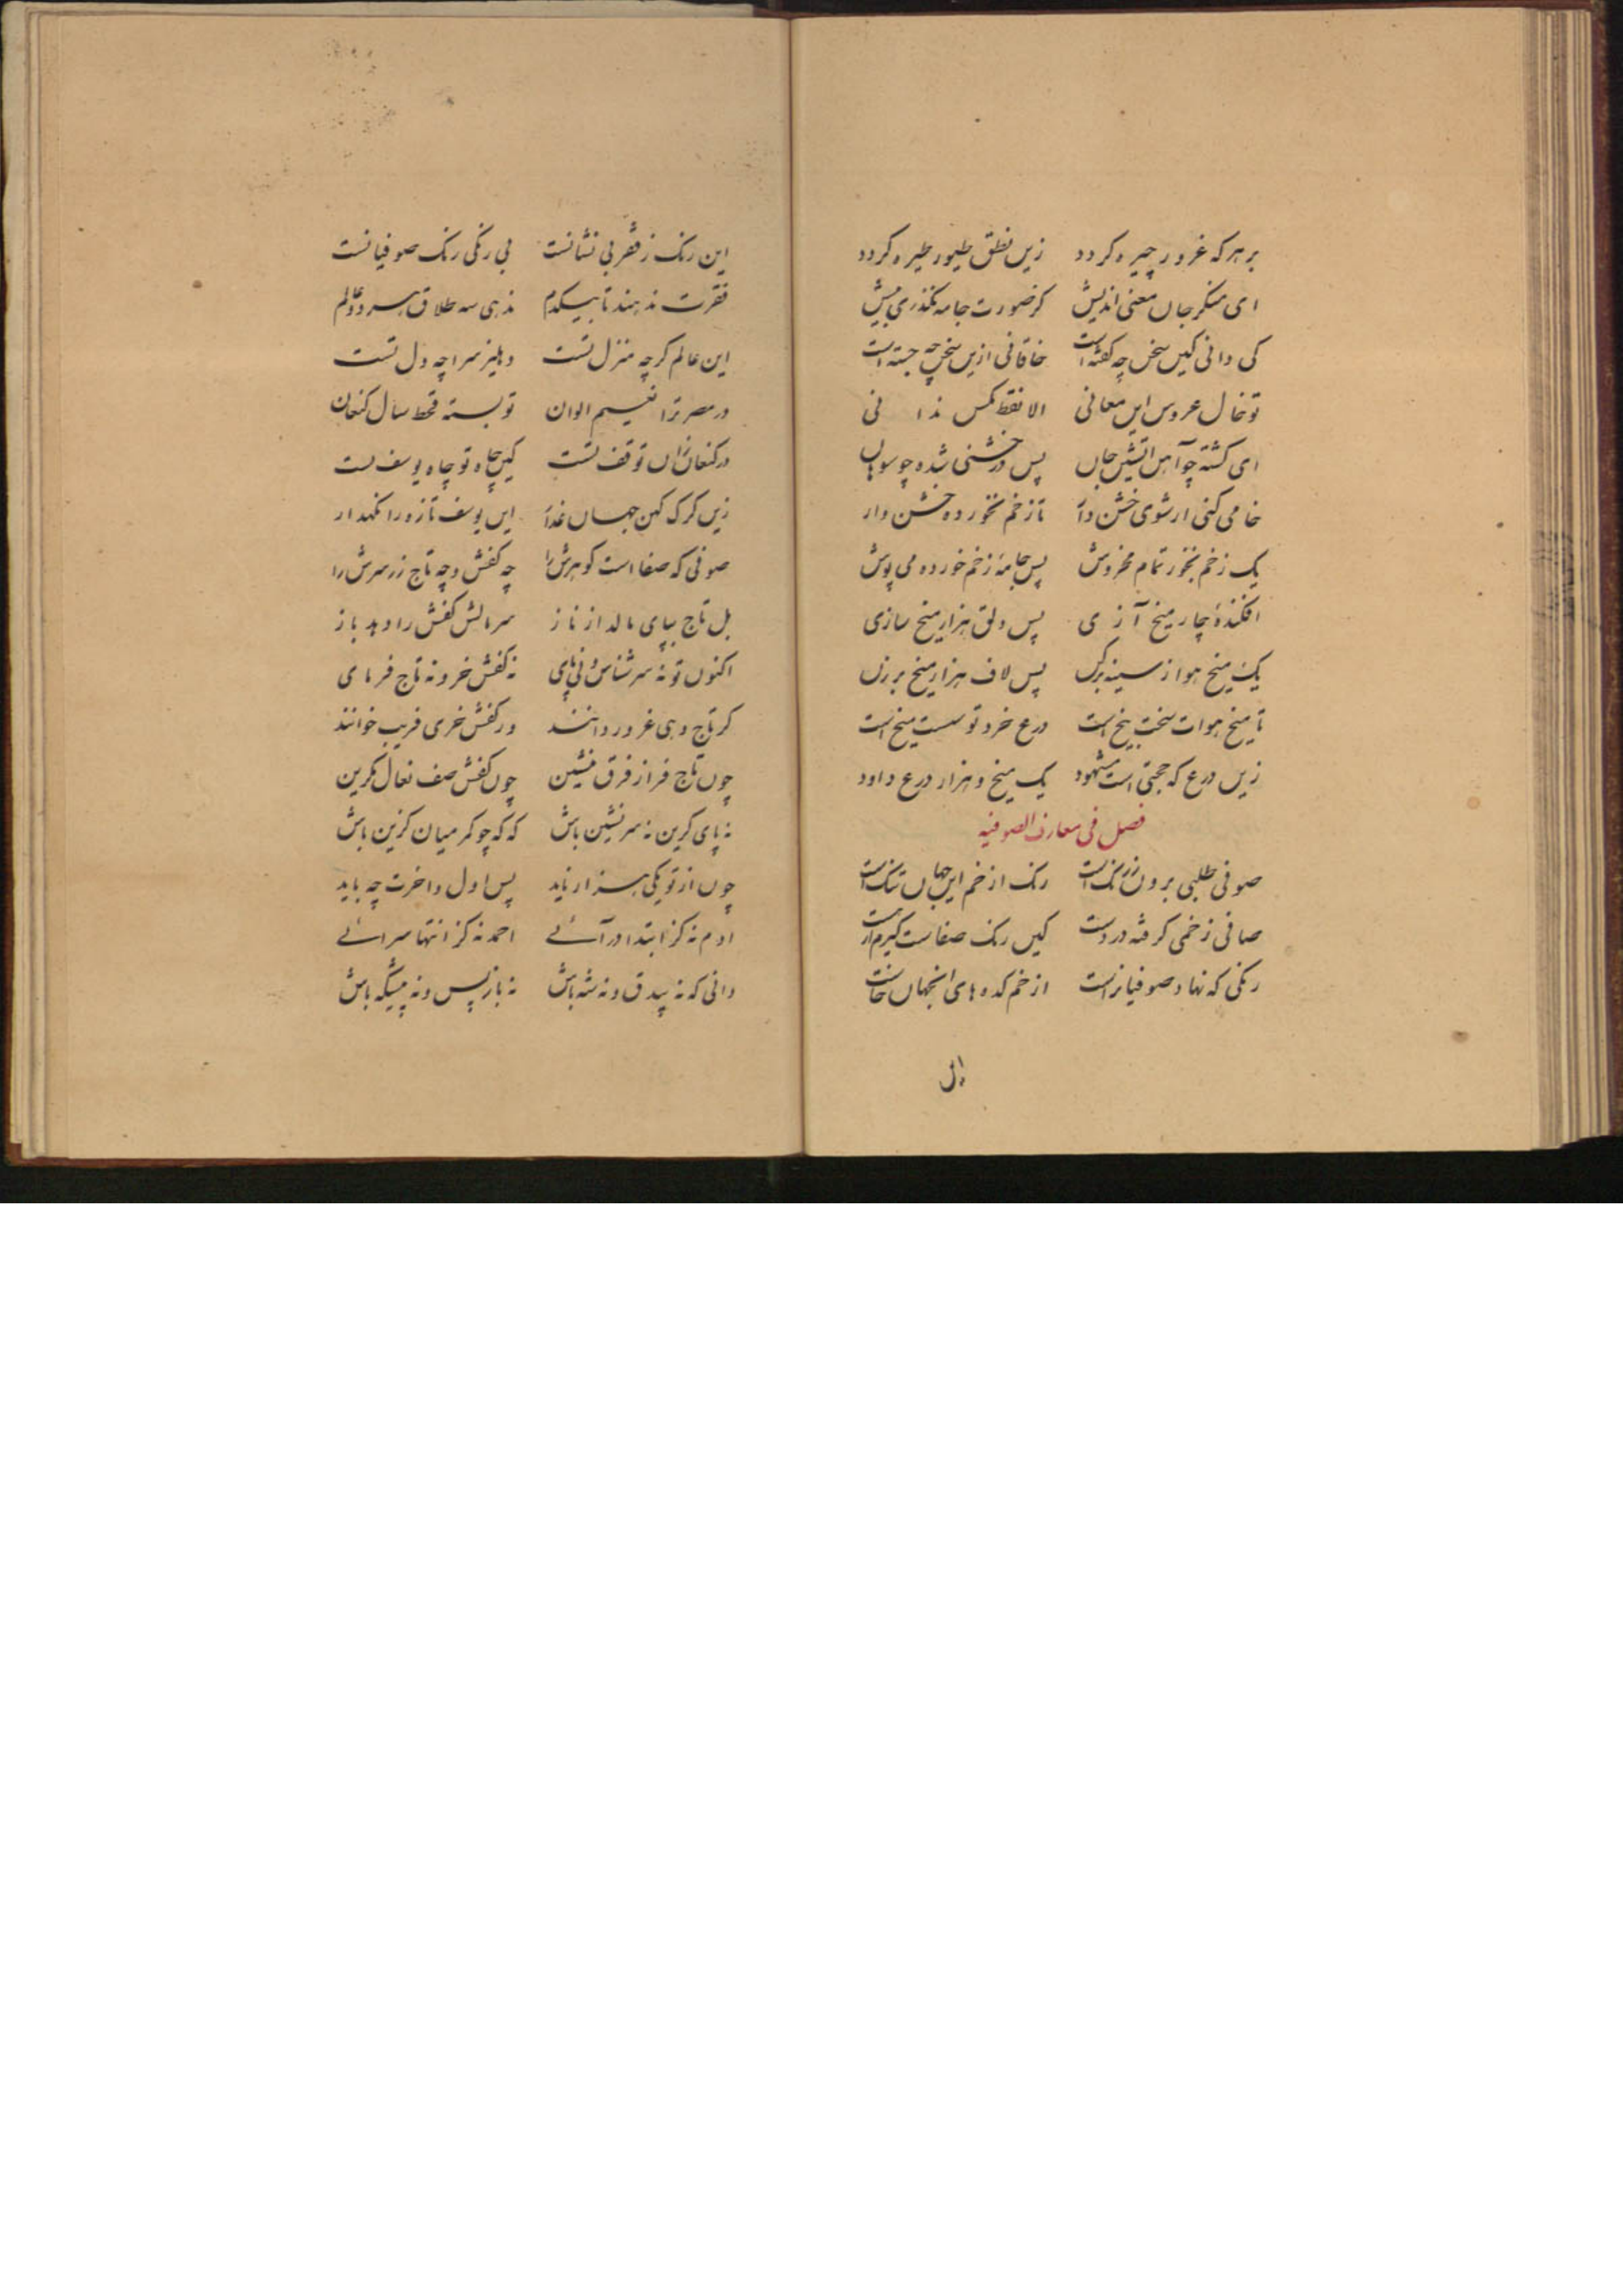 بر هر که غرور چیره کردد زین نطق طیور طیره کردد
ای منکر جان معنی اندیش کز صورت جامه نکذری پیش
کی دانی کین سخن چه کفته است خاقانی ازین سخن چه جسته است
تو خال عروس این معانی الا نقط مکس ندانی
ای کشته چو آهن آتشین جان پس در خشنی شده چو سوهان
خامی کنی ار شوی خشن دار تا زخم نخورده خشن وار
یک زخم نخور تمام مخروش پس جامهٔ زخم خورده می پوش
افکندهٔ چار میخ آزی پس دلق هزار میخ سازی
یک میخ هوا ز سینه برکن پس لاف هزار میخ بر زن
تا میخ هوات سخت بیخ است درع خرد تو سست میخ است
زین درع که حجتی است مشهود یک میخ و هزار درع داود
فصل فی معارف الصوفیه
صوفی طلبی برون ز رنک است رنک از خم این جهان ننک است
صافی ز خمی کرفته در دست کین رنک صفاست کیرم ار هست
رنکی که نهاد صوفیانراست از خم کده های انجهان خاست
این رنک ز فقر بی نشانست بی رنکی رنک صوفیانست
فقرت ندهند تا بیکدم ندهی سه طلاق هر دو عالم
این عالم کرچه منزل تست دهلیز سراچه دل تست
در مصر ترا نعیم الوان تو بسته قحط سال کنعان
در کنعان زان توقف تست کین چاه تو چاه یوسف تست
زین کرک کهن جهان غدار این یوسف تازه را نکهدار
صوفی که صفا است کوهرش را چه کفش و چه تاج زر سرش را
بل تاج بپای مالد از ناز سر مالش کفش را دهد باز
اکنون تو نه سر شناس و نی پای نه کفش خر و نه تاج فرمای
کر تاج دهی غرور دانند ور کفش خری فریب خوانند
چون تاج فراز فرق منشین چون کفش صف نعال مکزین
نه پای کزین نه سر نشین باش که که چو کمر میان کزین باش
چون از تو یکی هزار ناید پس اول و اخرت چه باید
ادم نه کز ابتدا در آئے احمد نه کز انتها سرائے
دانی که نه بیدق و نه شه باش نه باز پس و نه پیشکه باش